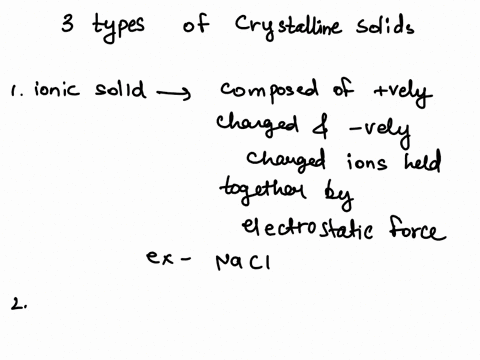 3 types of crystalline solids
1. ionic solid → composed of +vely
charged & -vely
charged ions held
together by
electrostatic force
ex - NaCl
2.